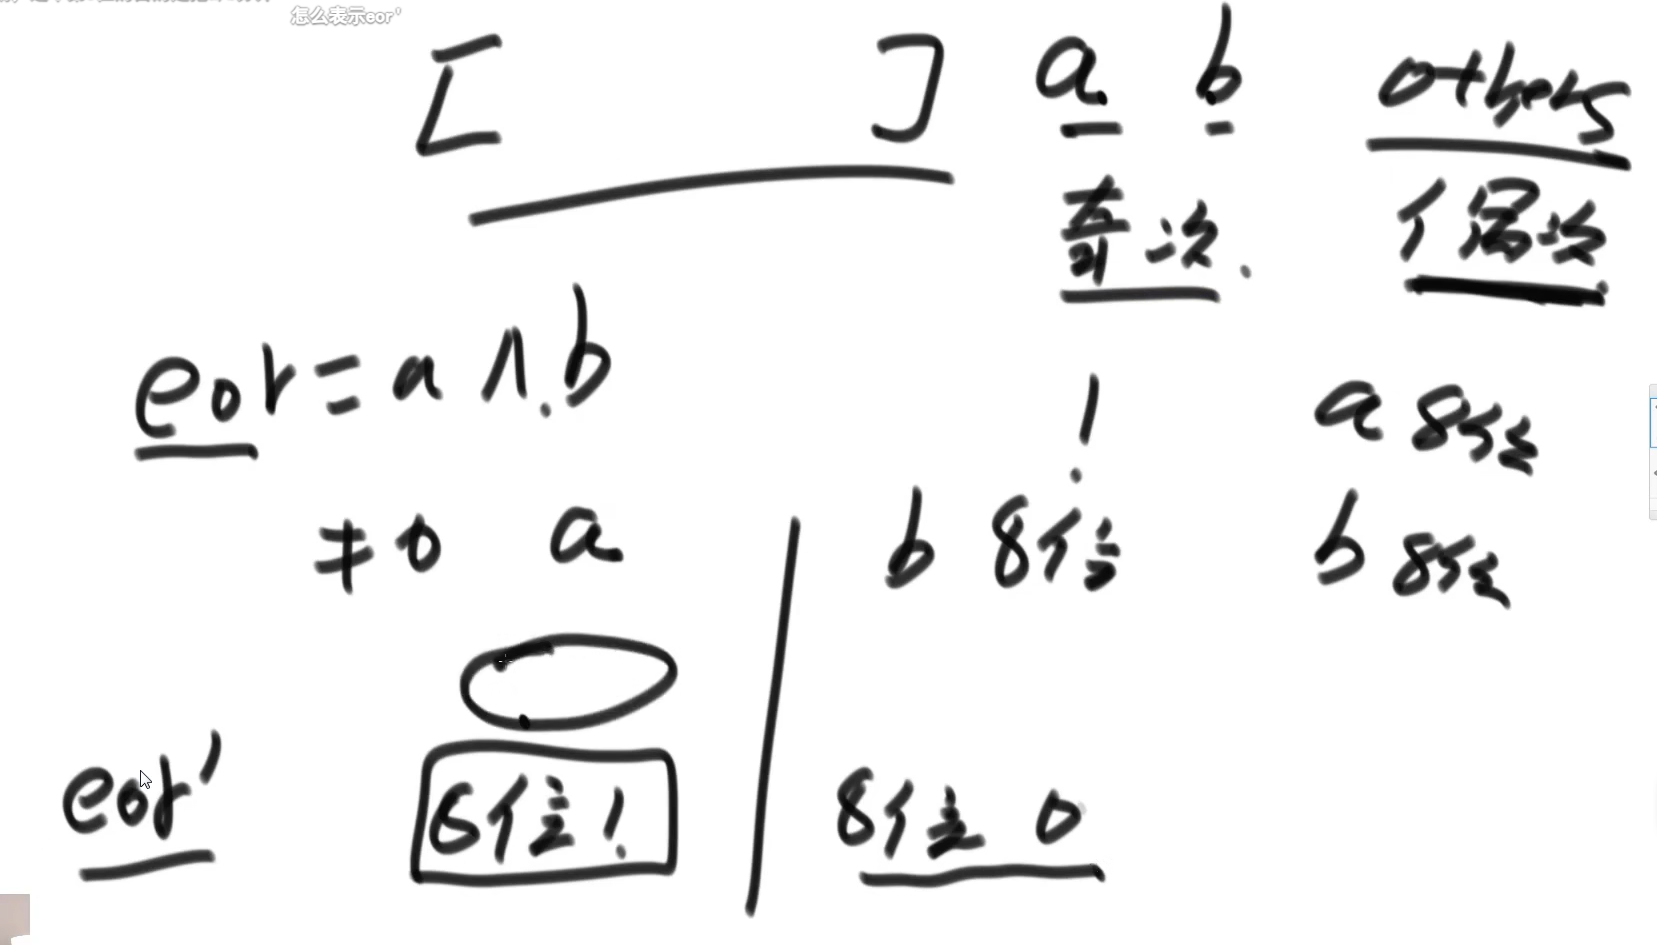 怎么表示eor'
[ ] a b others
奇次. 偶次
eor = a ^ b
a 8位
≠ 0 a b 8位 ! b 8位
eor' 8位 ! 8位 0